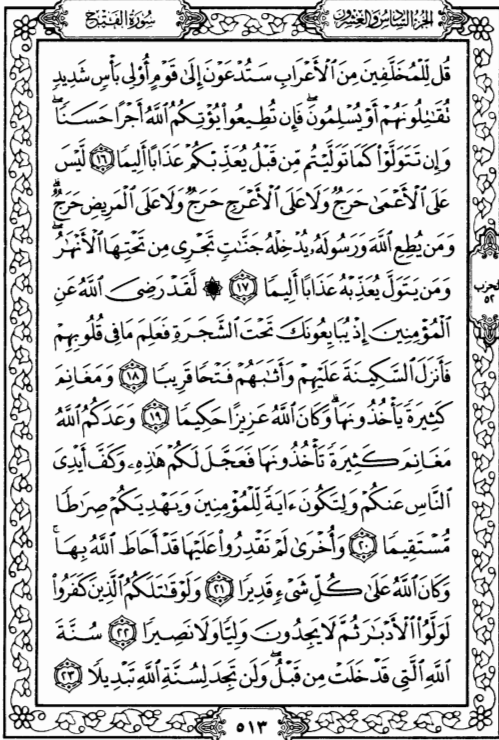 سُورَةُ الفَتْحِ
الجُزْءُ السَّادِسُ وَالعِشْرُونَ
قُل لِّلْمُخَلَّفِينَ مِنَ ٱلْأَعْرَابِ سَتُدْعَوْنَ إِلَىٰ قَوْمٍ أُو۟لِى بَأْسٍ شَدِيدٍ
تُقَـٰتِلُونَهُمْ أَوْ يُسْلِمُونَ ۖ فَإِن تُطِيعُوا۟ يُؤْتِكُمُ ٱللَّهُ أَجْرًا حَسَنًا ۖ
وَإِن تَتَوَلَّوْا۟ كَمَا تَوَلَّيْتُم مِّن قَبْلُ يُعَذِّبْكُمْ عَذَابًا أَلِيمًا ١٦ لَّيْسَ
عَلَى ٱلْأَعْمَىٰ حَرَجٌ وَلَا عَلَى ٱلْأَعْرَجِ حَرَجٌ وَلَا عَلَى ٱلْمَرِيضِ حَرَجٌ ۗ
وَمَن يُطِعِ ٱللَّهَ وَرَسُولَهُۥ يُدْخِلْهُ جَنَّـٰتٍ تَجْرِى مِن تَحْتِهَا ٱلْأَنْهَـٰرُ ۖ
وَمَن يَتَوَلَّ يُعَذِّبْهُ عَذَابًا أَلِيمًا ١٧ ۞ لَّقَدْ رَضِىَ ٱللَّهُ عَنِ
ٱلْمُؤْمِنِينَ إِذْ يُبَايِعُونَكَ تَحْتَ ٱلشَّجَرَةِ فَعَلِمَ مَا فِى قُلُوبِهِمْ
فَأَنزَلَ ٱلسَّكِينَةَ عَلَيْهِمْ وَأَثَـٰبَهُمْ فَتْحًا قَرِيبًا ١٨ وَمَغَانِمَ
كَثِيرَةً يَأْخُذُونَهَا ۗ وَكَانَ ٱللَّهُ عَزِيزًا حَكِيمًا ١٩ وَعَدَكُمُ ٱللَّهُ
مَغَانِمَ كَثِيرَةً تَأْخُذُونَهَا فَعَجَّلَ لَكُمْ هَـٰذِهِۦ وَكَفَّ أَيْدِىَ
ٱلنَّاسِ عَنكُمْ وَلِتَكُونَ ءَايَةً لِّلْمُؤْمِنِينَ وَيَهْدِيَكُمْ صِرَٰطًا
مُّسْتَقِيمًا ٢٠ وَأُخْرَىٰ لَمْ تَقْدِرُوا۟ عَلَيْهَا قَدْ أَحَاطَ ٱللَّهُ بِهَا ۚ
وَكَانَ ٱللَّهُ عَلَىٰ كُلِّ شَىْءٍ قَدِيرًا ٢١ وَلَوْ قَـٰتَلَكُمُ ٱلَّذِينَ كَفَرُوا۟
لَوَلَّوُا۟ ٱلْأَدْبَـٰرَ ثُمَّ لَا يَجِدُونَ وَلِيًّا وَلَا نَصِيرًا ٢٢ سُنَّةَ
ٱللَّهِ ٱلَّتِى قَدْ خَلَتْ مِن قَبْلُ ۖ وَلَن تَجِدَ لِسُنَّةِ ٱللَّهِ تَبْدِيلًا ٢٣
الحزب
٥٢
٥١٣